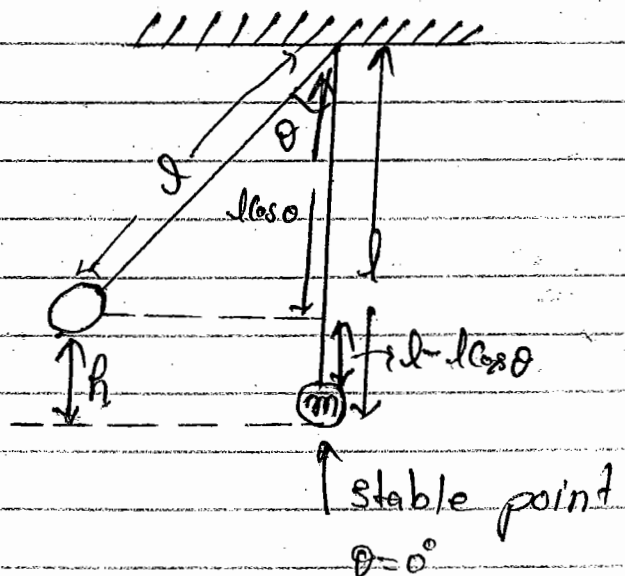 θ
l
l cosθ
l
l - l cosθ
h
m
stable point
θ = 0°